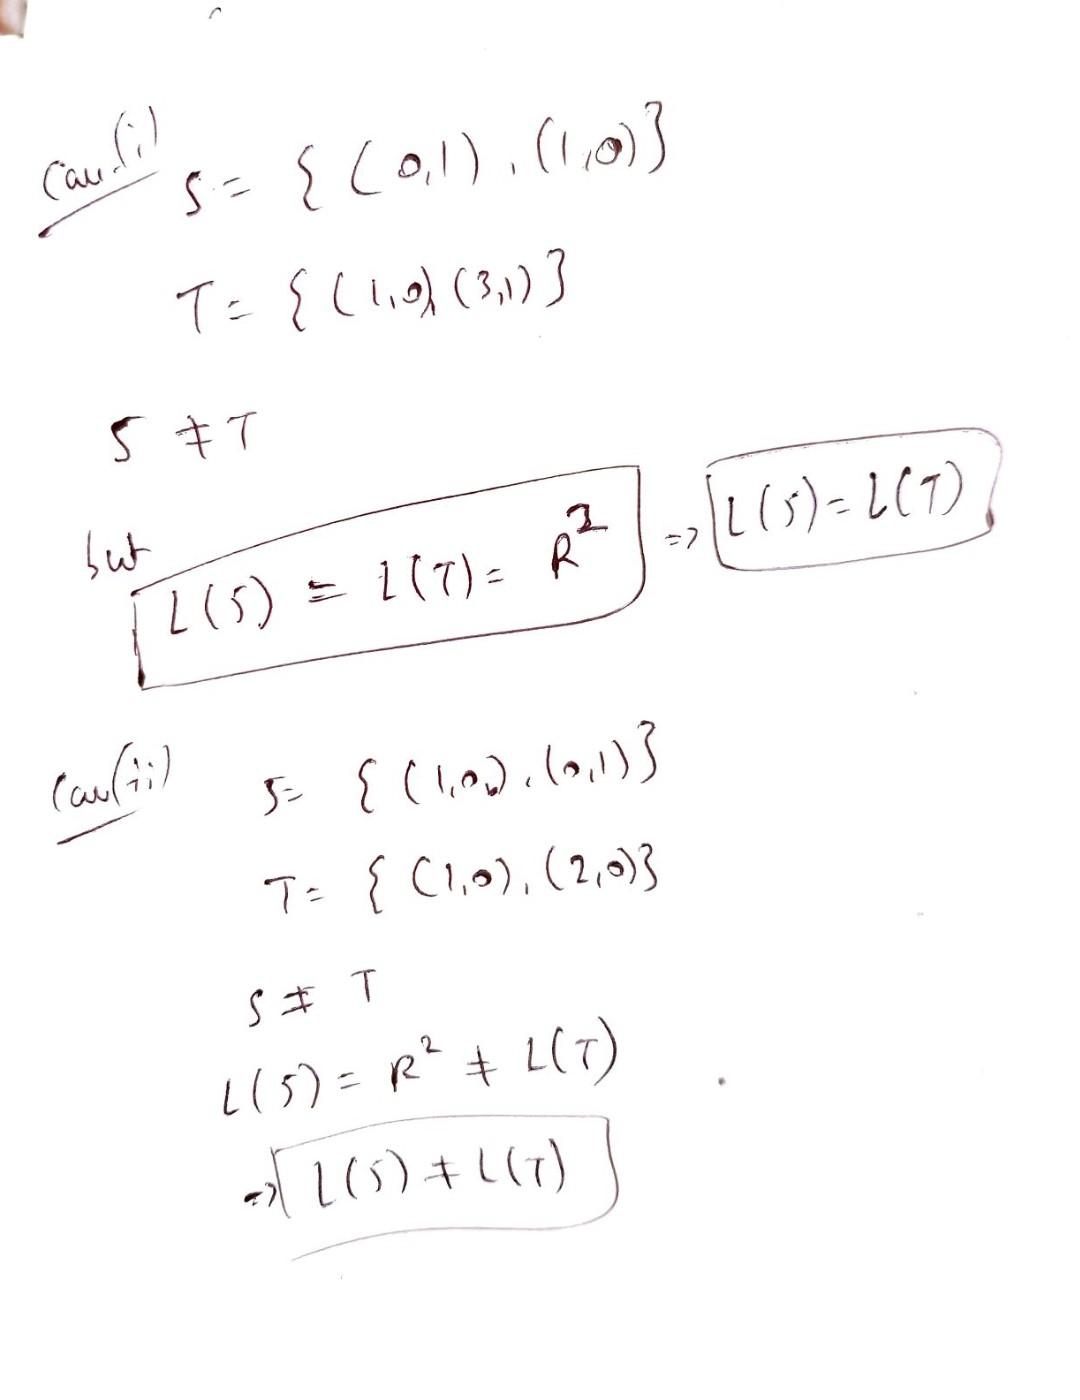 Case(i) S = { (0,1), (1,0)}
T = { (1,0), (3,1)}
S ≠ T
but L(S) = L(T) = R² => L(S) = L(T)
Case(ii) S = { (1,0), (0,1)}
T = { (1,0), (2,0)}
S ≠ T
L(S) = R² ≠ L(T)
=> L(S) ≠ L(T)